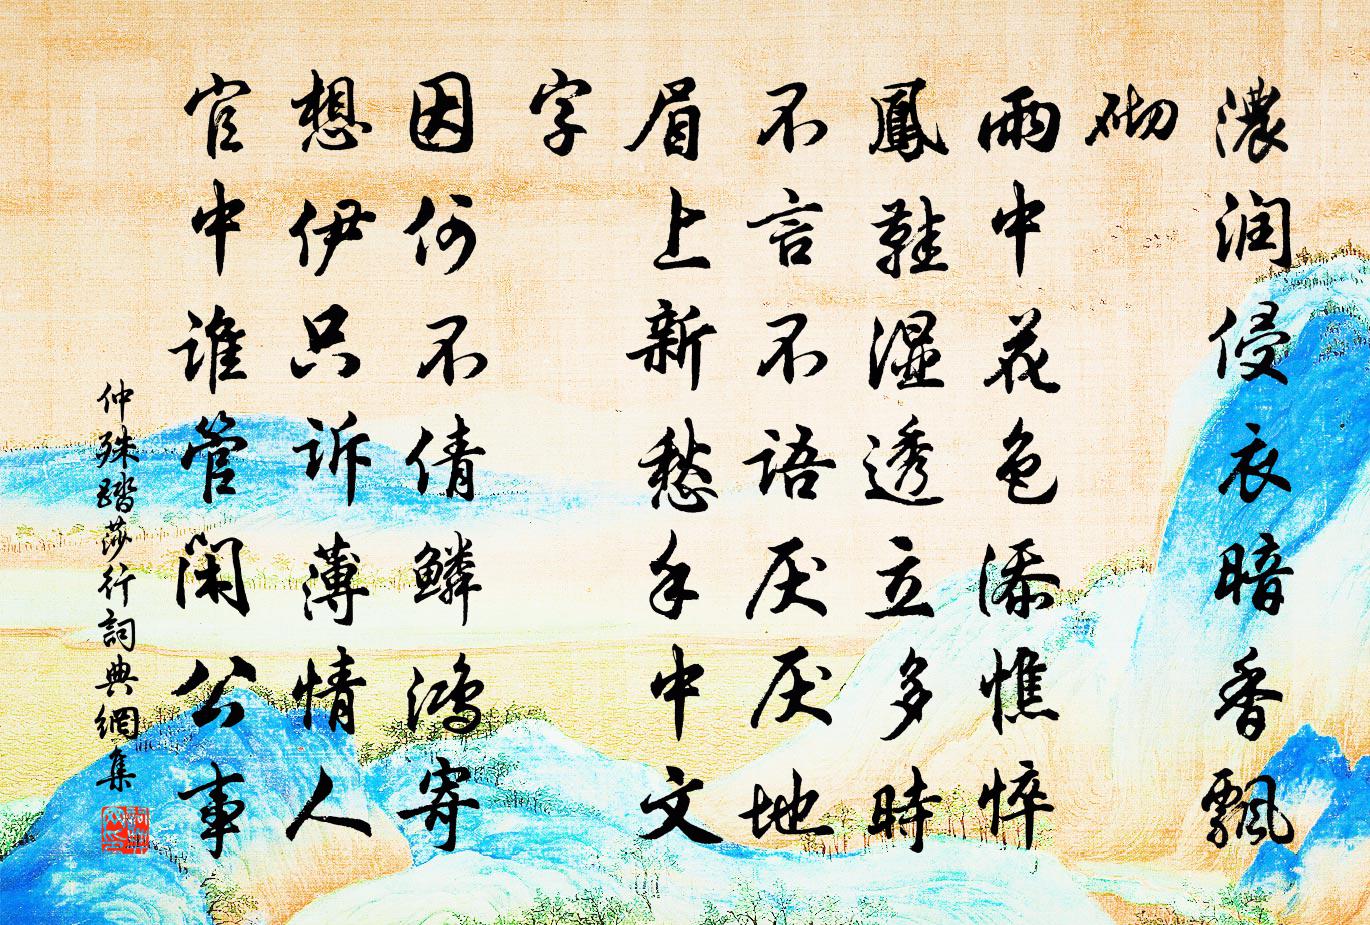 濃润侵衣暗香飄
砌
雨中花色添憔悴
鳳鞋湿透立多時
不言不语厌厌地
眉上新愁手中文
字
因何不倩鱗鸿寄
想伊只诉薄情人
官中谁管闲公事
仲殊踏莎行詞典網集